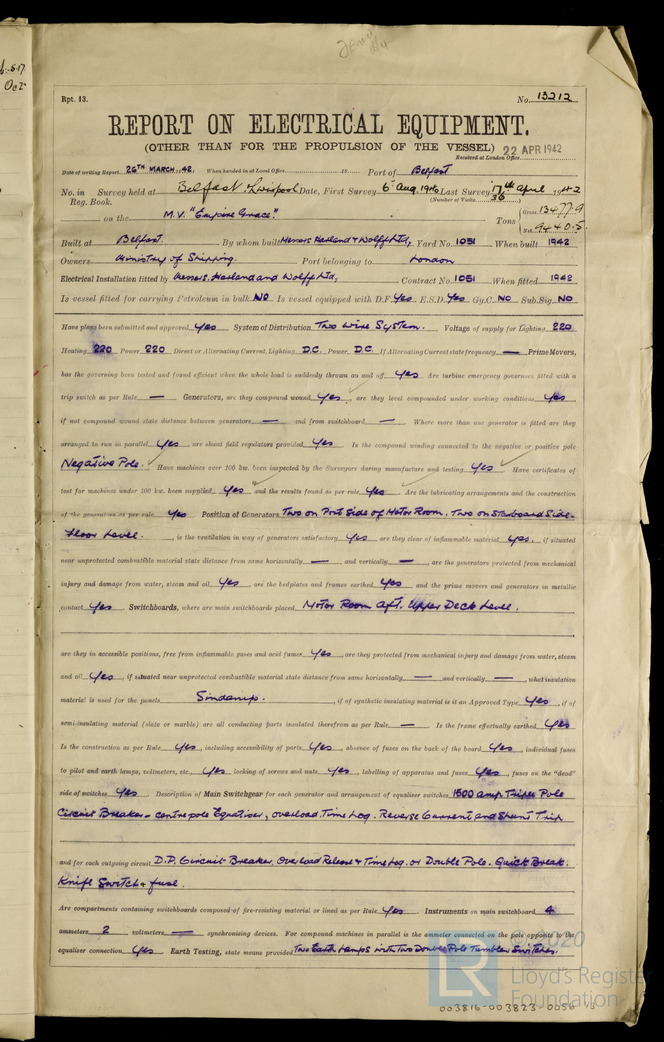 Rpt. 13.
No. 13212
REPORT ON ELECTRICAL EQUIPMENT.
(OTHER THAN FOR THE PROPULSION OF THE VESSEL) 22 APR 1942
Received at London Office
Date of writing Report 26TH MARCH 1942, When handed in at Local Office 19 Port of Belfast
No. in Survey held at Belfast & Liverpool Date, First Survey 6 Aug 1940 Last Survey 17th April 1942
Reg. Book. (Number of Visits 36)
on the M.V. "Empire Grace". Tons { Gross 13477.9
Net 9440.5
Built at Belfast. By whom built Messrs Harland & Wolff Ltd, Yard No. 1051 When built 1942
Owners Ministry of Shipping. Port belonging to London
Electrical Installation fitted by Messrs. Harland and Wolff Ltd, Contract No. 1051 When fitted 1942
Is vessel fitted for carrying Petroleum in bulk NO Is vessel equipped with D.F. Yes E.S.D. Yes Gy.C. NO Sub.Sig. NO
Have plans been submitted and approved Yes System of Distribution Two Wire System. Voltage of supply for Lighting 220
Heating 220 Power 220 Direct or Alternating Current, Lighting D.C. Power D.C. If Alternating Current state frequency — Prime Movers,
has the governing been tested and found efficient when the whole load is suddenly thrown on and off Yes Are turbine emergency governors fitted with a
trip switch as per Rule — Generators, are they compound wound Yes, are they level compounded under working conditions Yes,
if not compound wound state distance between generators — and from switchboard — Where more than one generator is fitted are they
arranged to run in parallel Yes, are shunt field regulators provided Yes Is the compound winding connected to the negative or positive pole
Negative Pole. Have machines over 100 kw. been inspected by the Surveyors during manufacture and testing Yes Have certificates of
test for machines under 100 kw. been supplied Yes and the results found as per rule Yes Are the lubricating arrangements and the construction
of the generators as per rule Yes Position of Generators Two on Port Side of Motor Room. Two on Starboard Side.
Floor Level. , is the ventilation in way of generators satisfactory Yes are they clear of inflammable material Yes, if situated
near unprotected combustible material state distance from same horizontally — and vertically —, are the generators protected from mechanical
injury and damage from water, steam and oil Yes, are the bedplates and frames earthed Yes and the prime movers and generators in metallic
contact Yes Switchboards, where are main switchboards placed Motor Room Aft. Upper Deck Level.
are they in accessible positions, free from inflammable gases and acid fumes Yes, are they protected from mechanical injury and damage from water, steam
and oil Yes, if situated near unprotected combustible material state distance from same horizontally — and vertically —, what insulation
material is used for the panels Sindanyo. , if of synthetic insulating material is it an Approved Type Yes, if of
semi-insulating material (slate or marble) are all conducting parts insulated therefrom as per Rule — Is the frame effectually earthed Yes
Is the construction as per Rule Yes, including accessibility of parts Yes, absence of fuses on the back of the board Yes, individual fuses
to pilot and earth lamps, voltmeters, etc., Yes locking of screws and nuts Yes, labelling of apparatus and fuses Yes, fuses on the "dead"
side of switches Yes Description of Main Switchgear for each generator and arrangement of equaliser switches 1500 amp. Triple Pole
Circuit Breaker - centre pole Equaliser, overload Time Lag. Reverse Current and Shunt Trip
and for each outgoing circuit D.P. Circuit Breaker, Overload Release & Time Lag. or Double Pole. Quick Break.
Knife Switch & fuse.
Are compartments containing switchboards composed of fire-resisting material or lined as per Rule Yes Instruments on main switchboard 4
ammeters 2 voltmeters — synchronising devices. For compound machines in parallel is the ammeter connected on the pole opposite to the
equaliser connection Yes Earth Testing, state means provided Two Earth Lamps with Two Double Pole Tumbler Switches.
© 2020
LR
Lloyd's Register
Foundation
003816-003823-0056 1/3